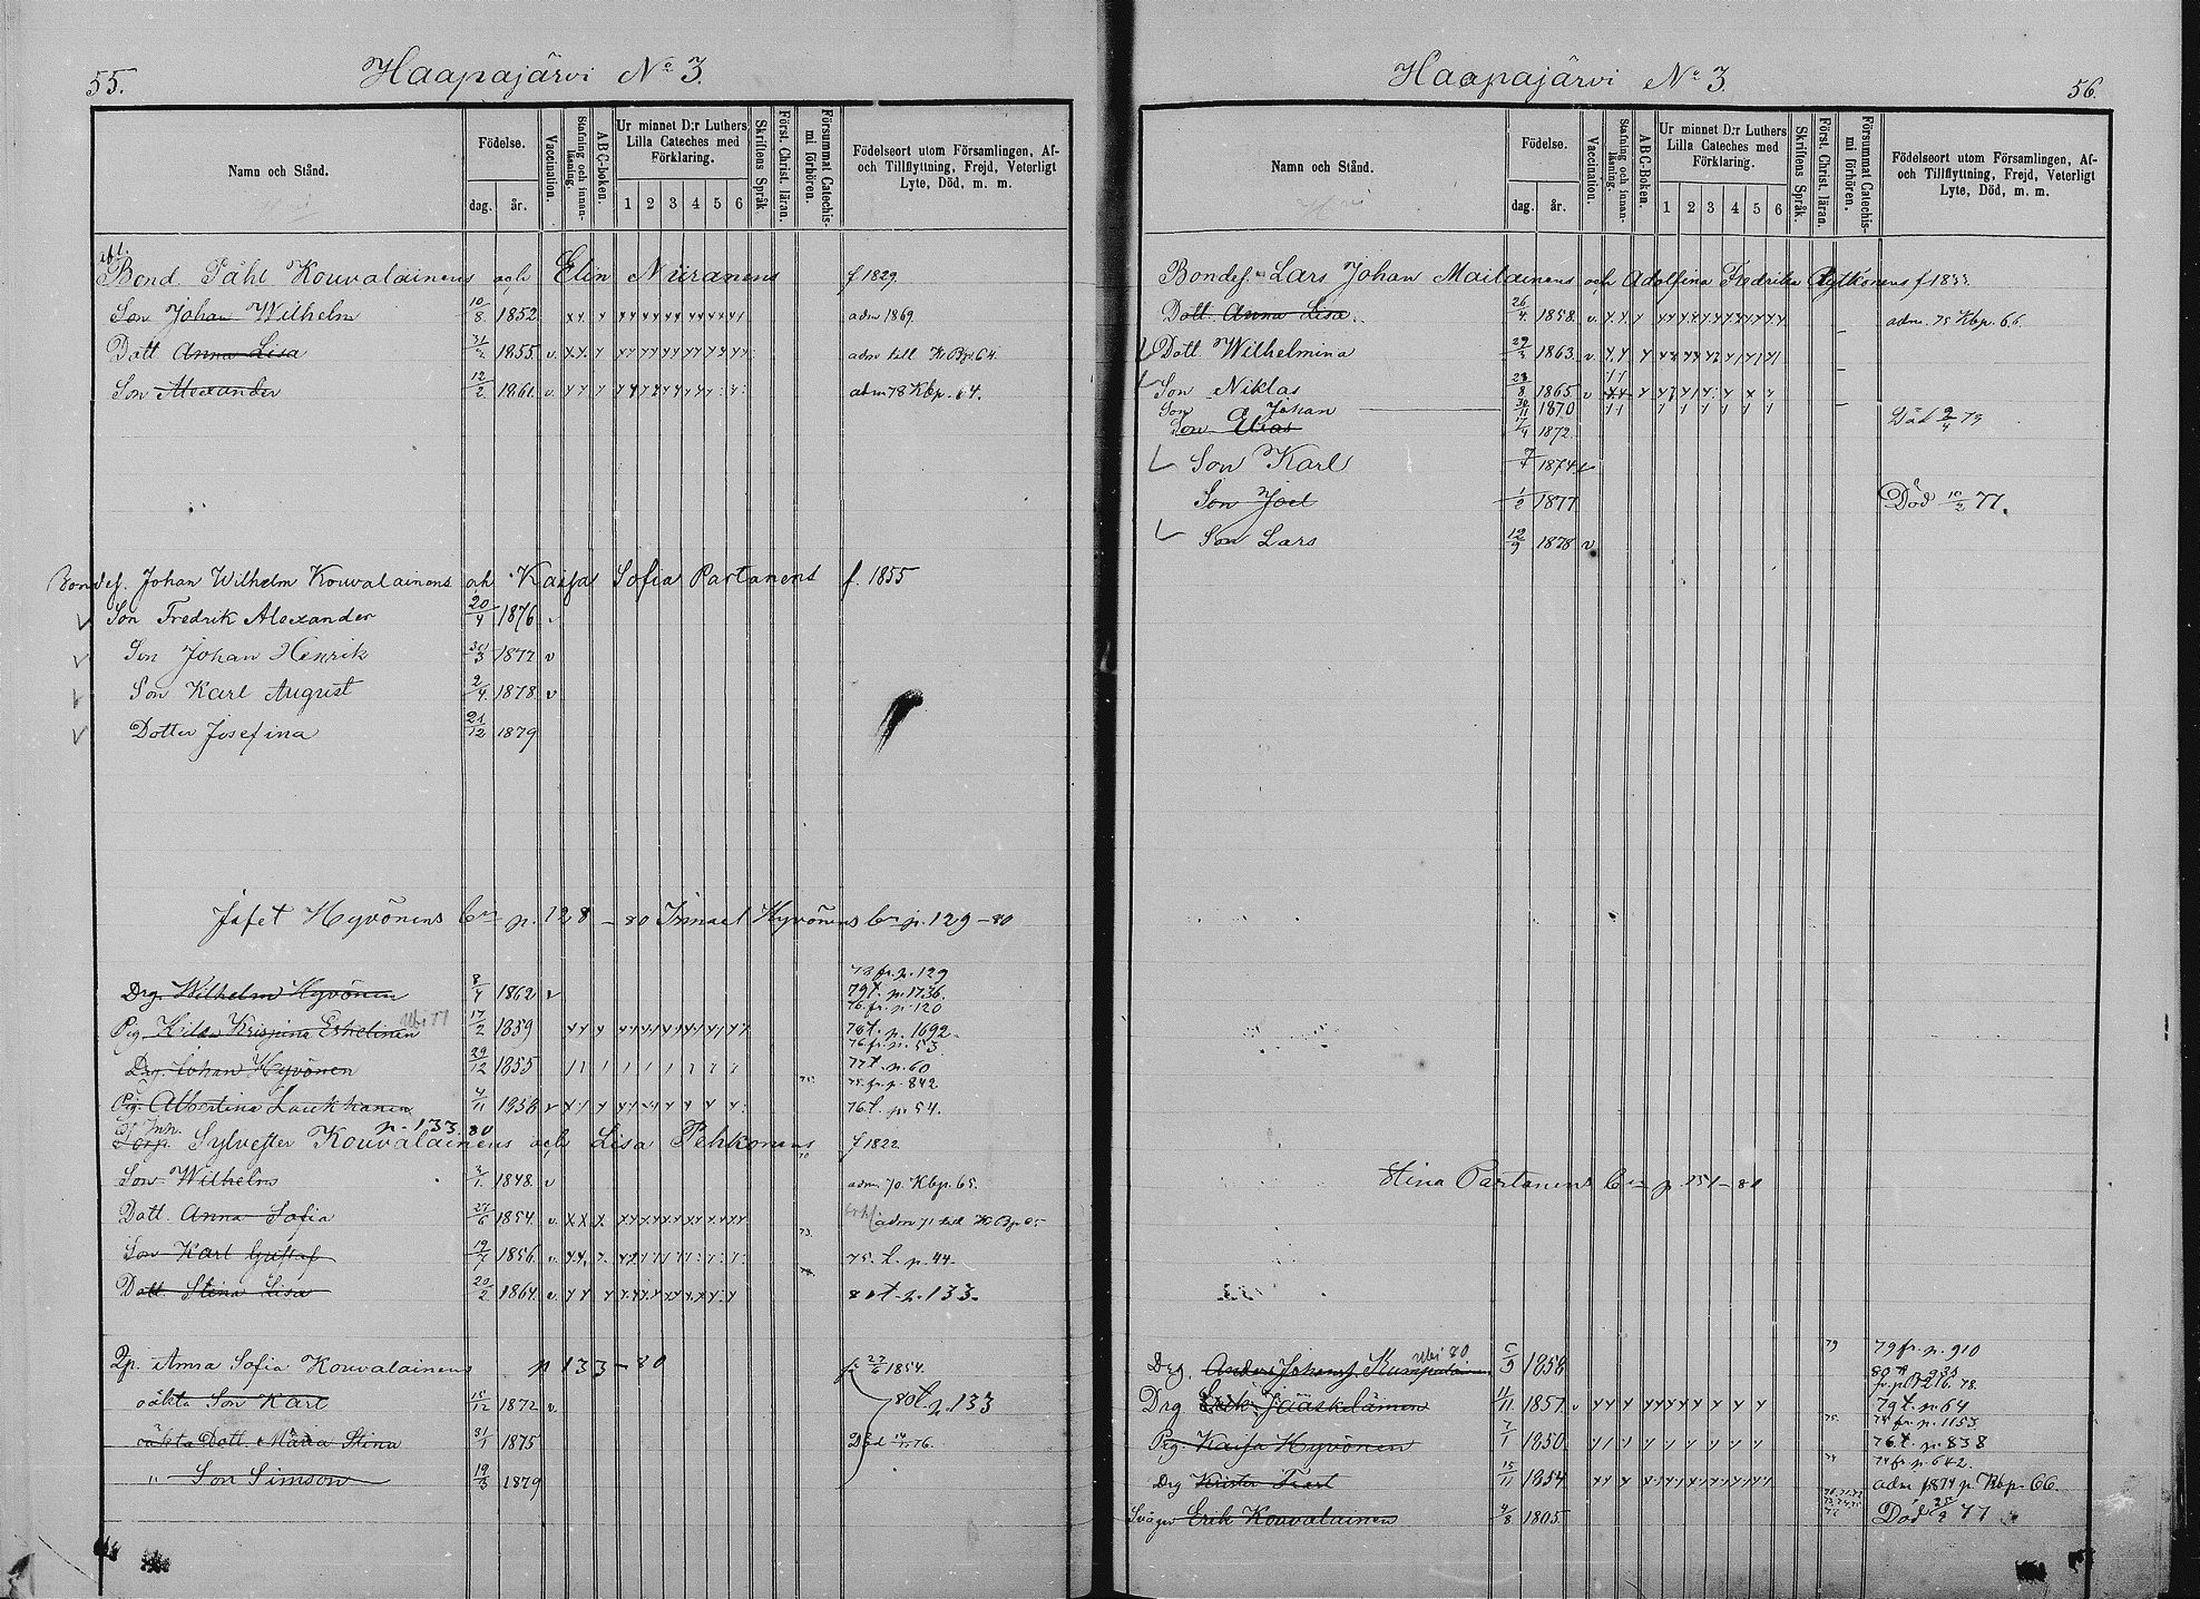 55.
Haapajärvi No 3.
Namn och Stånd.
Födelse.
dag. år.
Vaccination.
Stafning och innan-läsning.
ABC-boken.
Ur minnet D:r Luthers Lilla Cateches med Förklaring.
1 2 3 4 5 6
Skriftens Språk.
Först. Christ. läran.
Försummat Catechis-mi förhören.
Födelseort utom Församlingen, Af- och Tillflyttning, Frejd, Veterligt Lyte, Död, m. m.
Bond. Påhl Kouvalainens och Elin Niiranens f 1829.
Son Johan Wilhelm 10/8 1852 adm 1869.
Dott Anna Lisa 1855 v. adm till K.Bp. 64
Son Alexander 12/2 1861. v. adm 78 Kbp. 64.
Bondes. Johan Wilhelm Kouvalainens och Kaisa Sofia Partanens f. 1855
Son Fredrik Alexander 20/4 1876
Son Johan Henrik 1877 v
Son Karl August 2/4. 1878. v
Dotter Josefina 21/12 1879
Jafet Hyvönens p. 128 – 80 Ismael Hyvönens p. 129 – 80
78 fr. p. 129
Drg. Wilhelm Hyvönen 8/4 1862 v 79 t. p. 1736.
76. fr. p. 120
Pig. Hilda Eskelinen 17/2 1859 78 t. p. 1692
76 fr. p. 53
Drg. Johan Hyvönen 29/12 1855 77 t. p. 60
75. fr. p. 842
Pig. Albertina Laukkanen 4/11 1858 v 76 t. p. 54.
p. 133. 80
Sylvester Kouvalainens och Lisa Pehkonens f 1822
Son Wilhelm 3/1. 1848. v adm. 70. Kbp. 65.
Dott. Anna Sofia 27/6 1854. v. adm 71 till K.Bp 65
Son Karl Gustaf 19/7 1856. v. 75. t. p. 44.
Dott. Stina Lisa 20/2 1864. v. 80 t. p. 133.
Anna Sofia Kouvalainens p 133 – 80 f. 27/6 1854.
oäkta Son Karl 15/12 1872 v. 80 t. p. 133
oäkta Dott. Maria Stina 31/1 1875 Död 76.
" Son Simson 19/3 1879
Haapajärvi No 3.
56.
Namn och Stånd.
Födelse.
dag. år.
Vaccination.
Stafning och innan-läsning.
ABC-Boken.
Ur minnet D:r Luthers Lilla Cateches med Förklaring.
1 2 3 4 5 6
Skriftens Språk.
Först. Christ. läran.
Försummat Catechis-mi förhören.
Födelseort utom Församlingen, Af- och Tillflyttning, Frejd, Veterligt Lyte, Död, m. m.
Bondes. Lars Johan Mailainens och Adolfina Fredrika Rytkönens
Dott. Anna Lisa. 26/4. 1858. v. adm. 75 Kbp. 66.
Dott Wilhelmina 1863. v
Son Niklas 1865. v
Son Johan 30/11 1870
Son Elias 17/4 1872. Död 79
Son Karl 1874 v
Son Joel 1/2 1877 Död 10/2 77.
Son Lars 12/9 1878 v
Stina Partanens p. 151 – 80
79 79 fr. p. 910
Drg. Anders Johans. Kumpulainen 1858
Drg Erik Jääskeläinen 11/11 1857. v 79 t. p. 64
75. 75 fr. p. 1153
Pig. Kaisa Hyvönen 7/1 1850. 76. t. p. 838
74 fr. p. 642.
Drg Krister Trast 15/11 1854 adm 1874 p. Kbp. 66.
Svåger Erik Kouvalainen 4/8 1805 Död 25/9 77